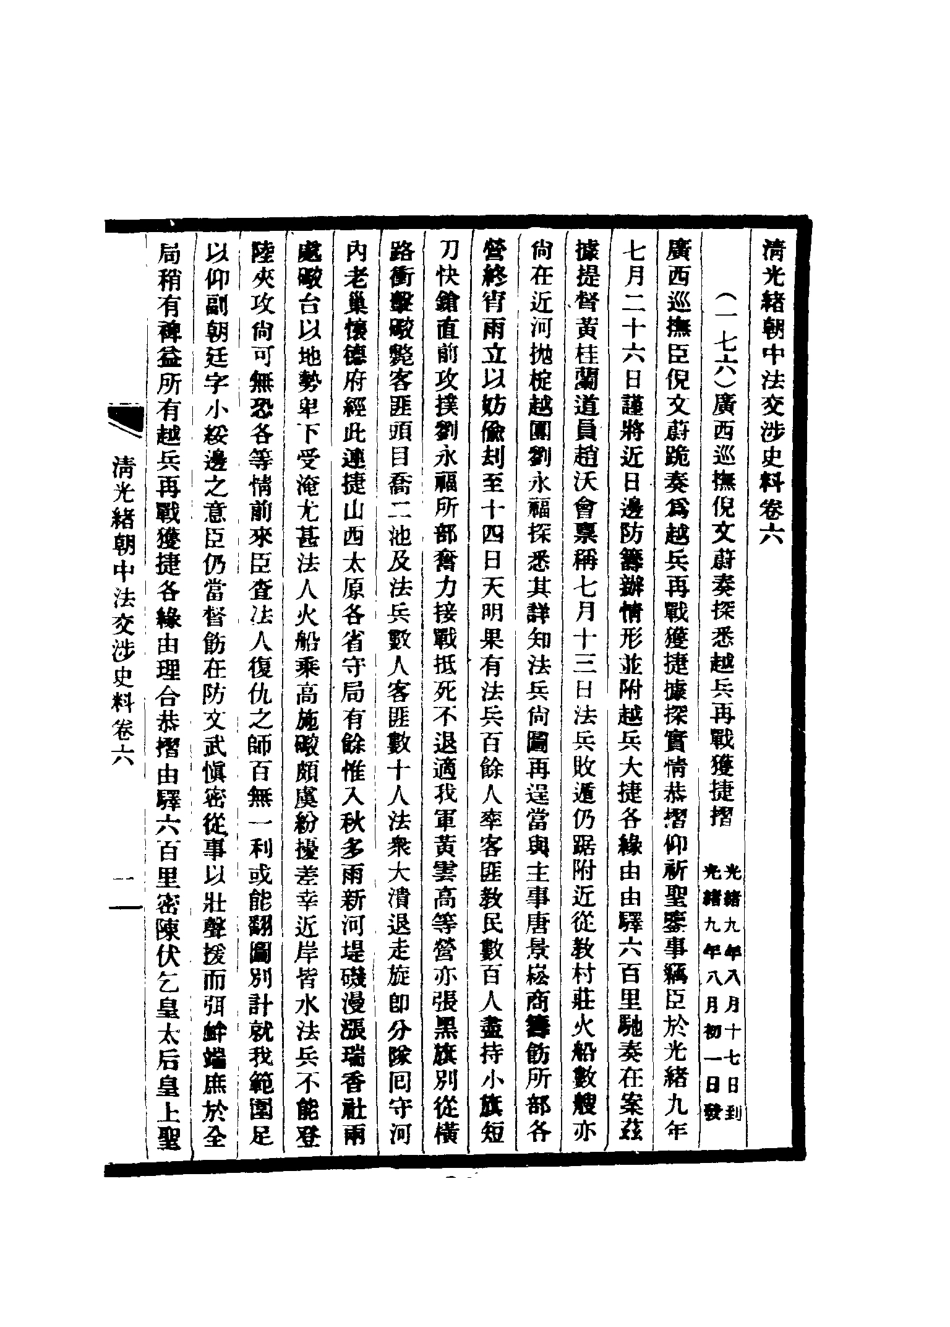 清光緒朝中法交涉史料卷六
（一七六）廣西巡撫倪文蔚奏探悉越兵再戰獲捷摺
光緒九年八月十七日到
光緒九年八月初一日發
廣西巡撫臣倪文蔚跪奏爲越兵再戰獲捷據探實情恭摺仰祈聖鑒事竊臣於光緒九年
七月二十六日謹將近日邊防籌辦情形並附越兵大捷各緣由由驛六百里馳奏在案茲
據提督黃桂蘭道員趙沃會稟稱七月十三日法兵敗遁仍踞附近從敎村莊火船數艘亦
尙在近河抛椗越團劉永福探悉其詳知法兵尙圖再逞當與主事唐景崧商籌飭所部各
營終宵雨立以妨偸刦至十四日天明果有法兵百餘人率客匪敎民數百人盡持小旗短
刀快鎗直前攻撲劉永福所部奮力接戰抵死不退適我軍黃雲高等營亦張黑旗別從橫
路衝擊礮斃客匪頭目喬二池及法兵數人客匪數十人法衆大潰退走旋卽分隊囘守河
內老巢懷德府經此連捷山西太原各省守局有餘惟入秋多雨新河堤磯漫漲瑞香社兩
處礮台以地勢卑下受淹尤甚法人火船乘高施礮頗虞紛擾差幸近岸皆水法兵不能登
陸夾攻尙可無恐各等情前來臣査法人復仇之師百無一利或能翻圖別計就我範圍足
以仰副朝廷字小綏邊之意臣仍當督飭在防文武愼密從事以壯聲援而弭衅端庶於全
局稍有裨益所有越兵再戰獲捷各緣由理合恭摺由驛六百里密陳伏乞皇太后皇上聖
清光緒朝中法交涉史料卷六
一